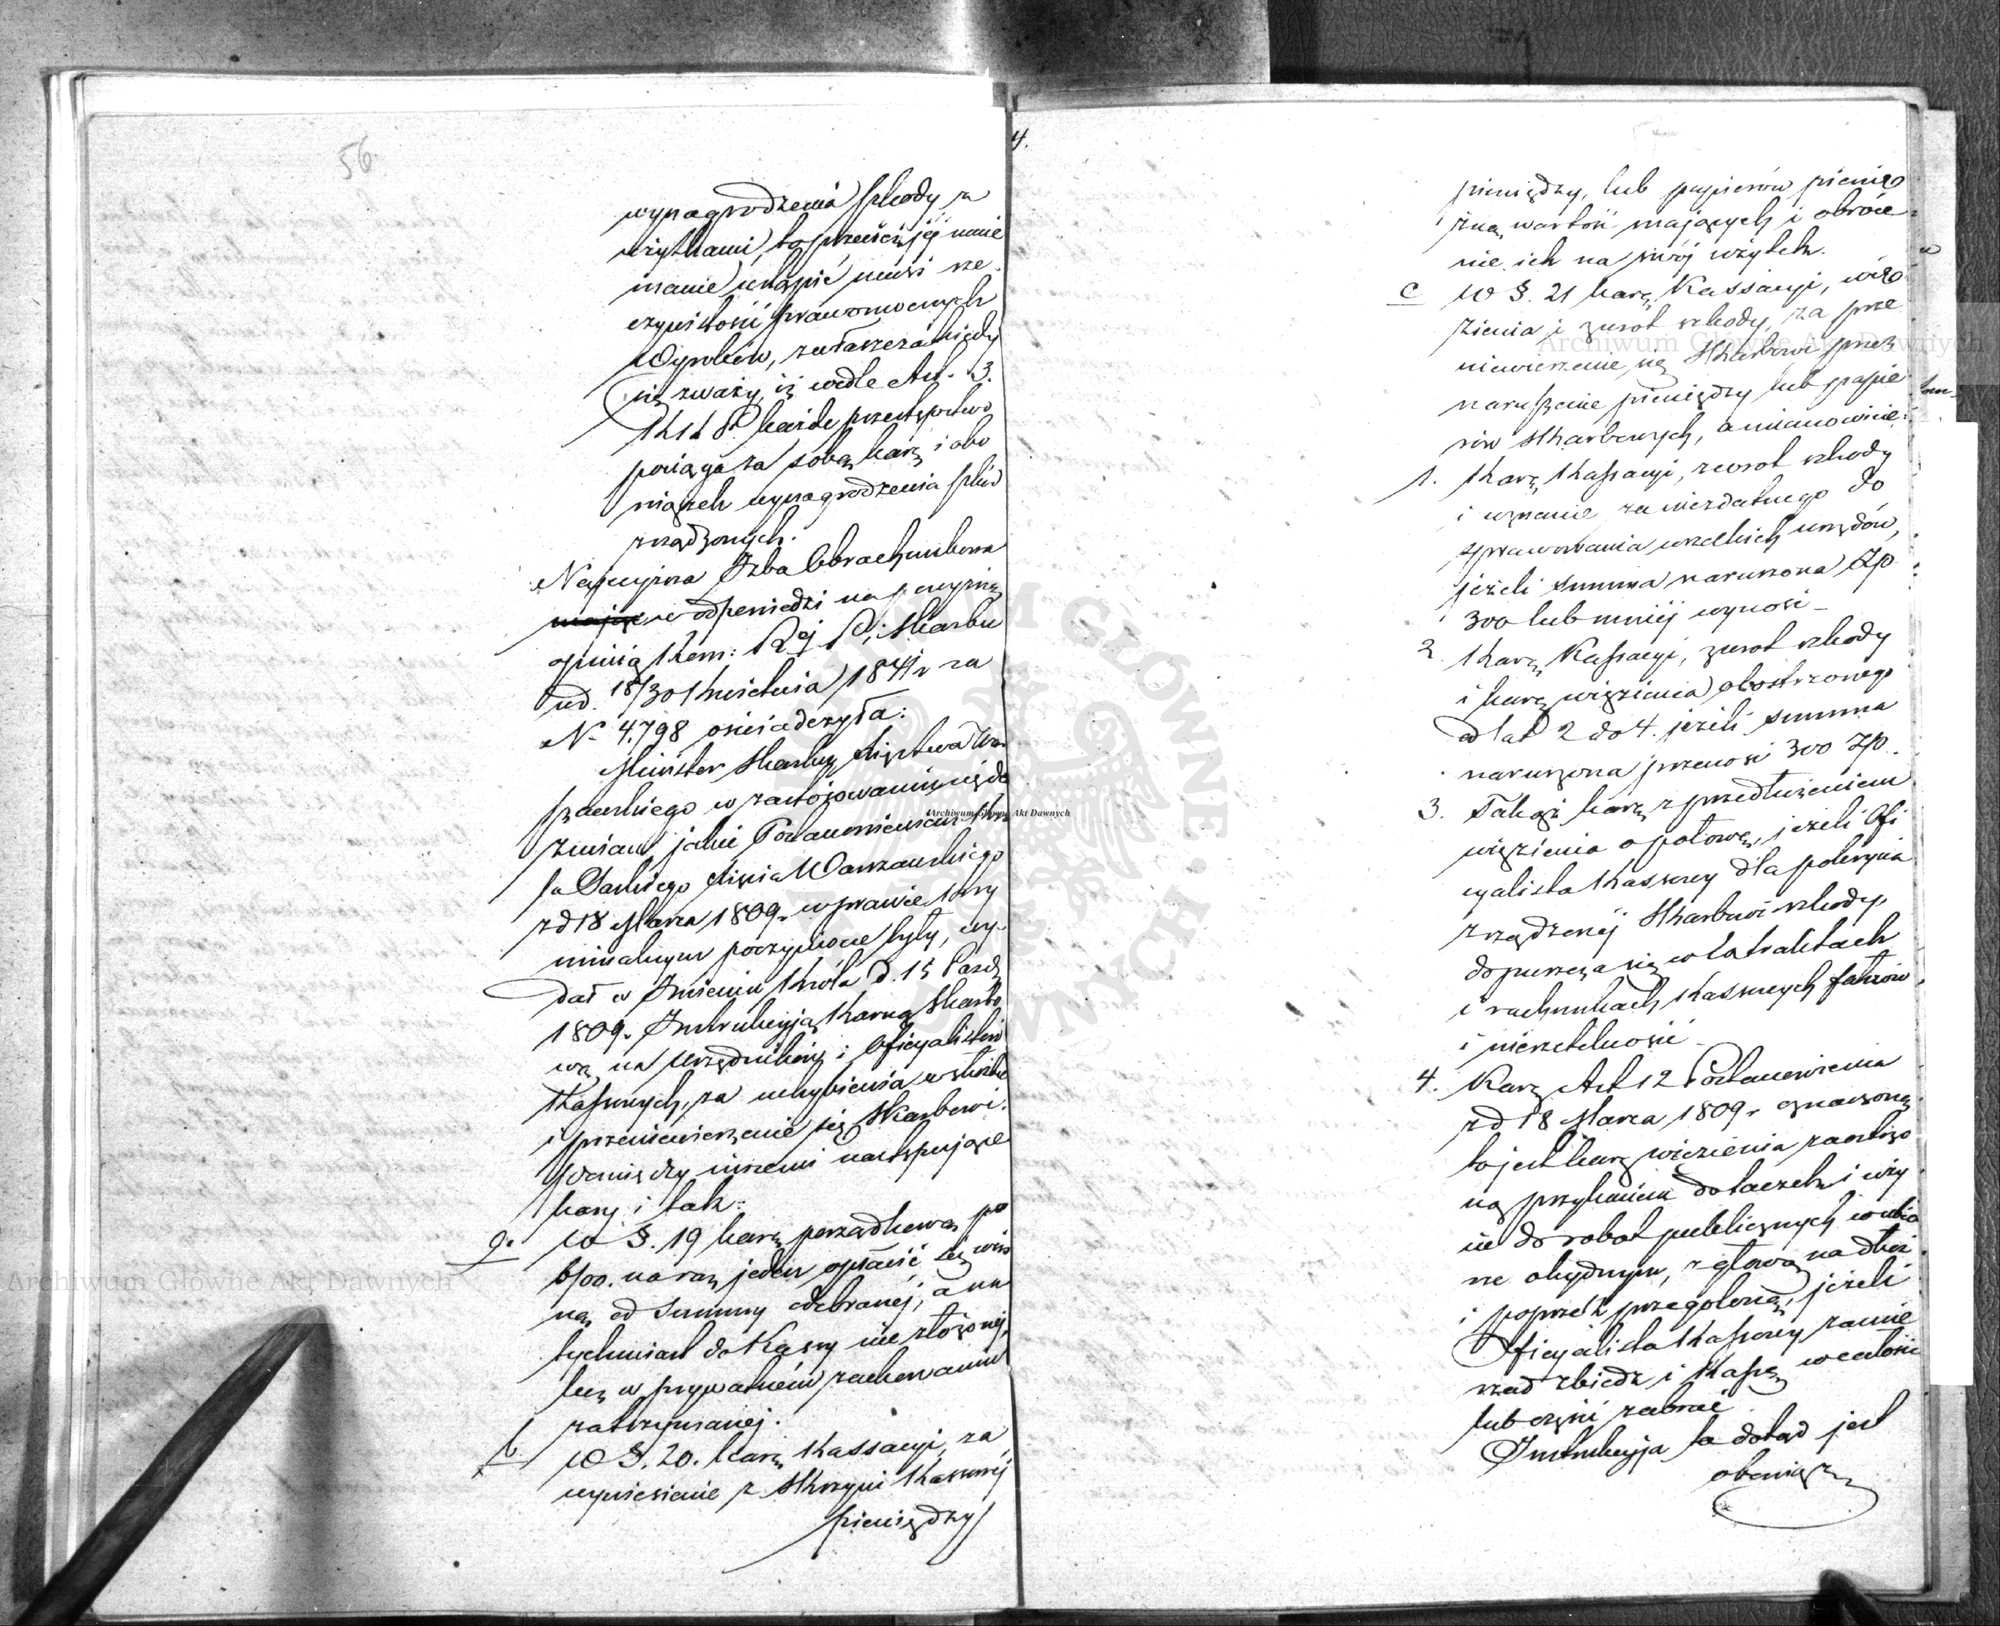 56
wynagrodzenia szkody z
użytkami, to przecież jéj umie
czywistość prawomocnych
Wyroków, zwłaszcza kiedy
się zważy, iż wedle Art. 3.
K K P. każde przestępstwo
pociąga za sobą karę i obo
wiązek wynagrodzenia szkód
zrządzonych.
Najwyższa Izba Obrachunkowa
w odpowiedzi na powyższą
opinią Kom: R. P. i Skarbu
z d. 18/30 Kwietnia 1841 r za
N 4,798 oświadczyła:
Minister Skarbu Xięstwa War
szawskiego w zastosowaniu się do
zmian, jakie Postanowieniem Kró
la Saskiego Xięcia Warszawskiego
z d 18 Marca 1809 r. w prawie kry
minalnym poczynione były, wy-
dał w Imieniu Króla d. 15 Paźdz
1809 r. Instrukcyją Karną Skarbo
wą na Urzędników i Oficyalistów
Kassowych, za uchybienia w służbie
i przeniewierzenie się Skarbowi.
Pomiędzy innemi następujące
kary i tak:
a W §. 19 karę porządkową po
6/00. na raz jeden opłacić się win
ną od Summy odebranéj, a na
tychmiast do Kassy nie złożonéj,
lecz w prywatném zachowaniu
zatrzymanéj.
b. W §. 20. karę Kassacyi, za
wyniesienie z Skrzyni Kassowéj
pieniędzy
4.
pieniędzy, lub papierów pienię
żną wartość mających i obróce-
nie ich na swój użytek.
c W §. 21 karę Kassacyi, wię
zienia i zwrot szkody, za prze
niewierzenie się Skarbowi przez
naruszenie pieniędzy lub papie
rów Skarbowych, a mianowicie:
1. Karę Kassacyi, zwrot szkody
i uznanie za niezdatnego do
sprawowania wszelkich urzędów,
jeżeli summa naruszona Zp
300 lub mniéj wynosi –
2. Karę Kassacyi, zwrot szkody
i karę więzienia obostrzonego
od lat 2 do 4. jeżeli summa
naruszona przenosi 300 Zp.
3. Takąż karę z przedłużeniem
więzienia o połowę, jeżeli Ofi
cyalista Kassowy dla pokrycia
zrządzonéj Skarbowi szkody,
dopuszcza się w Extraktach
i rachunkach Kassowych fałszów
i nierzetelności –
4. Karę Art 12 Postanowienia
z d 18 Marca 1809 r. oznaczoną
to jest karę więzienia zaostrzo
ną przykuciem do taczek i uży
cie do robot publicznych w ubio
rze ohydnym, z głową na dłuż
i poprzek przegoloną, jeżeli
Oficyalista Kassowy zamie
rzał zbiedz i Kassę w całości
lub części zabrać
Instrukcyja ta dotąd jest
obowiązu
Archiwum Główne Akt Dawnych
Archiwum Główne Akt Dawnych
Archiwum Główne Akt Dawnych